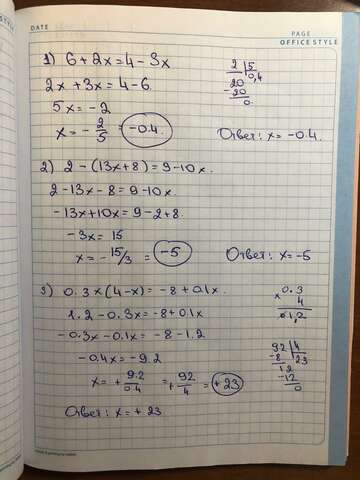 DATE
PAGE
OFFICE STYLE
1) 6+2x=4-3x
2x+3x=4-6
5x=-2
x=-2/5=-0.4
2 |5
20 0,4
-20
0
Ответ: x=-0.4.
2) 2-(13x+8)=9-10x.
2-13x-8=9-10x.
-13x+10x=9-2+8.
-3x=15
x=-15/3=-5
Ответ: x=-5
3) 0.3×(4-x)=-8+0.1x.
1.2-0.3x=-8+0.1x
-0.3x-0.1x=-8-1.2
-0.4x=-9.2
x=+9.2/0.4=+92/4=+23
×0.3
4
01,2
92 |4
-8 23
12
-12
0
Ответ: x=+23